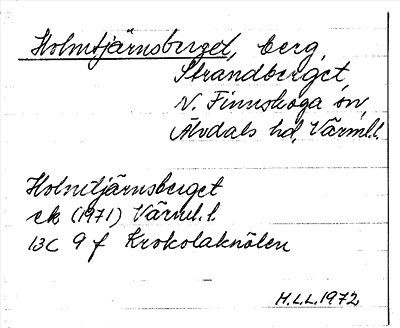 Holmtjärnsberget, berg,
Strandberget,
N. Finnskoga sn,
Älvdals hd, Värml.l.
Holmtjärnsberget
ek (1971) Värml.l.
13C 9f Krokolaknölen
H.L.L. 1972